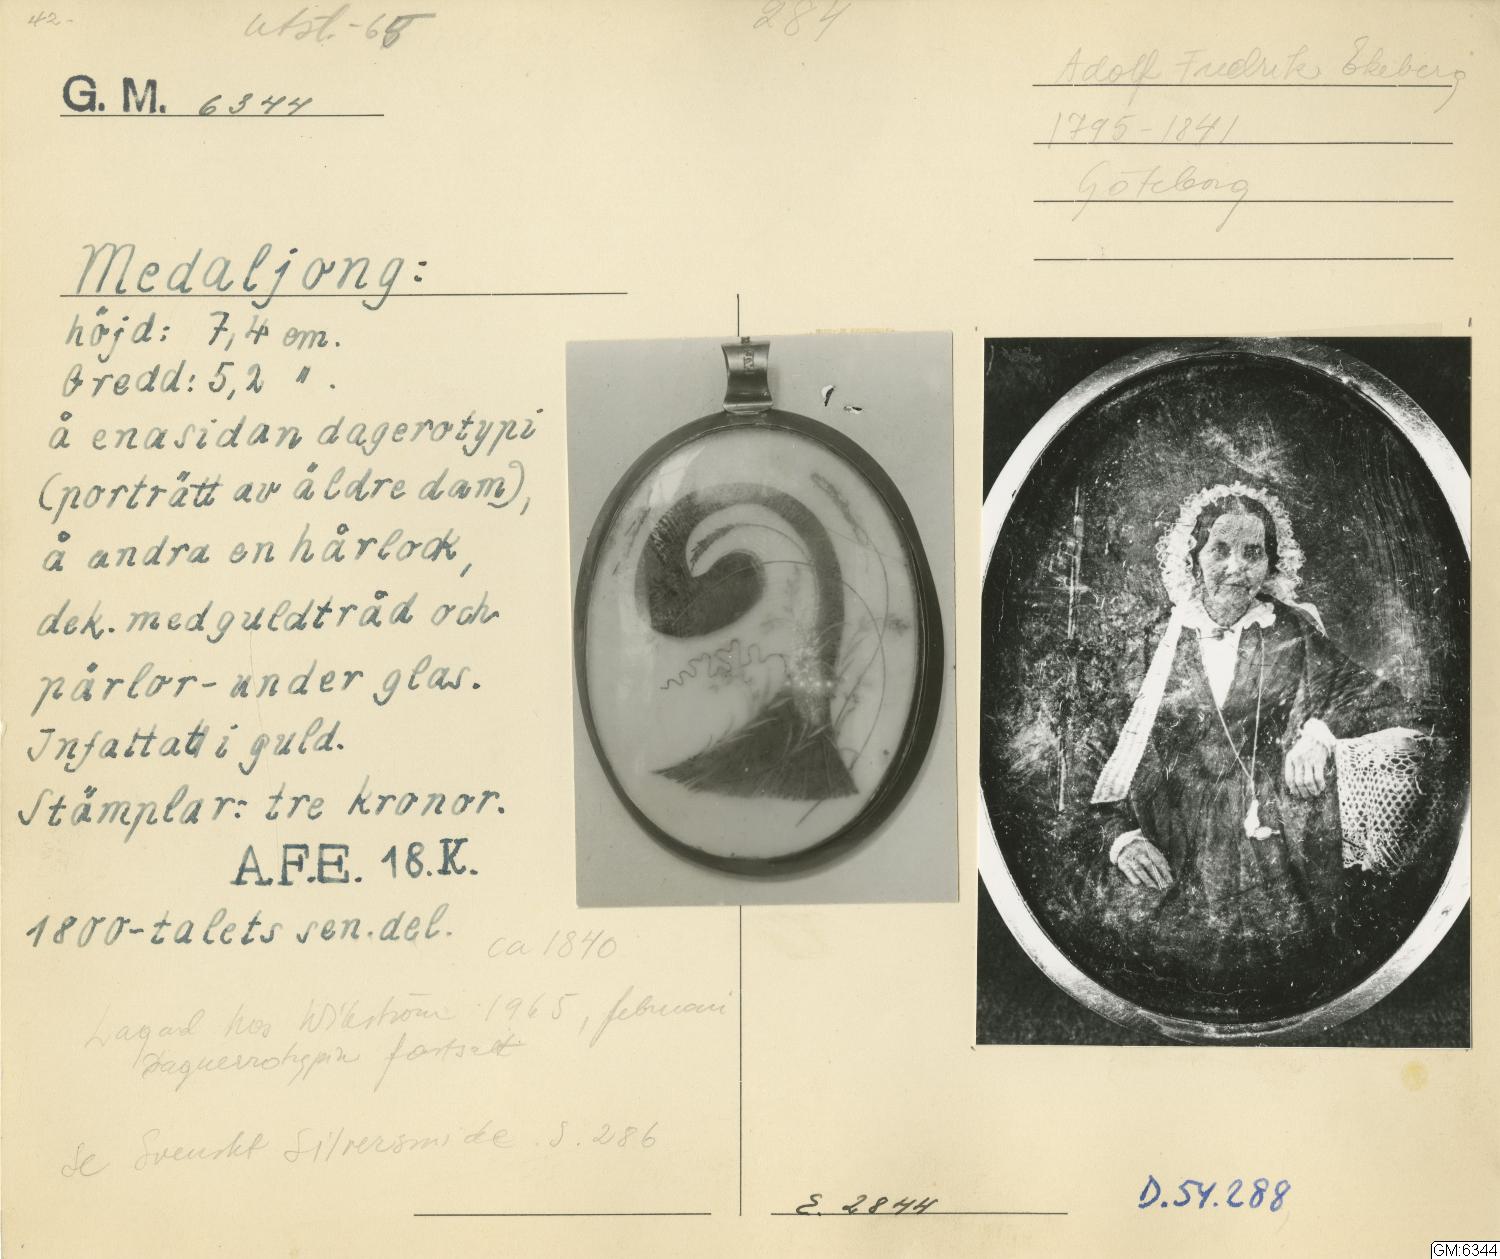 42-
Utst. -65
284
G. M. 6344
Adolf Fredrik Ekeberg
1795-1841
Göteborg
Medaljong:
höjd: 7,4 cm.
bredd: 5,2 " .
å enasidan dagerotypi
(porträtt av äldre dam),
å andra en hårlock,
dek. med guldtråd och
pärlor - under glas.
Infattat i guld.
Stämplar: tre kronor.
A.F.E. 18.K.
1800-talets sen. del.
ca 1840
Lagad hos Wikström 1965, februari
Daguerrotypin fortsatt
Se Svenskt Silversmide. S. 286
E. 2844
D.54.288
GM:6344